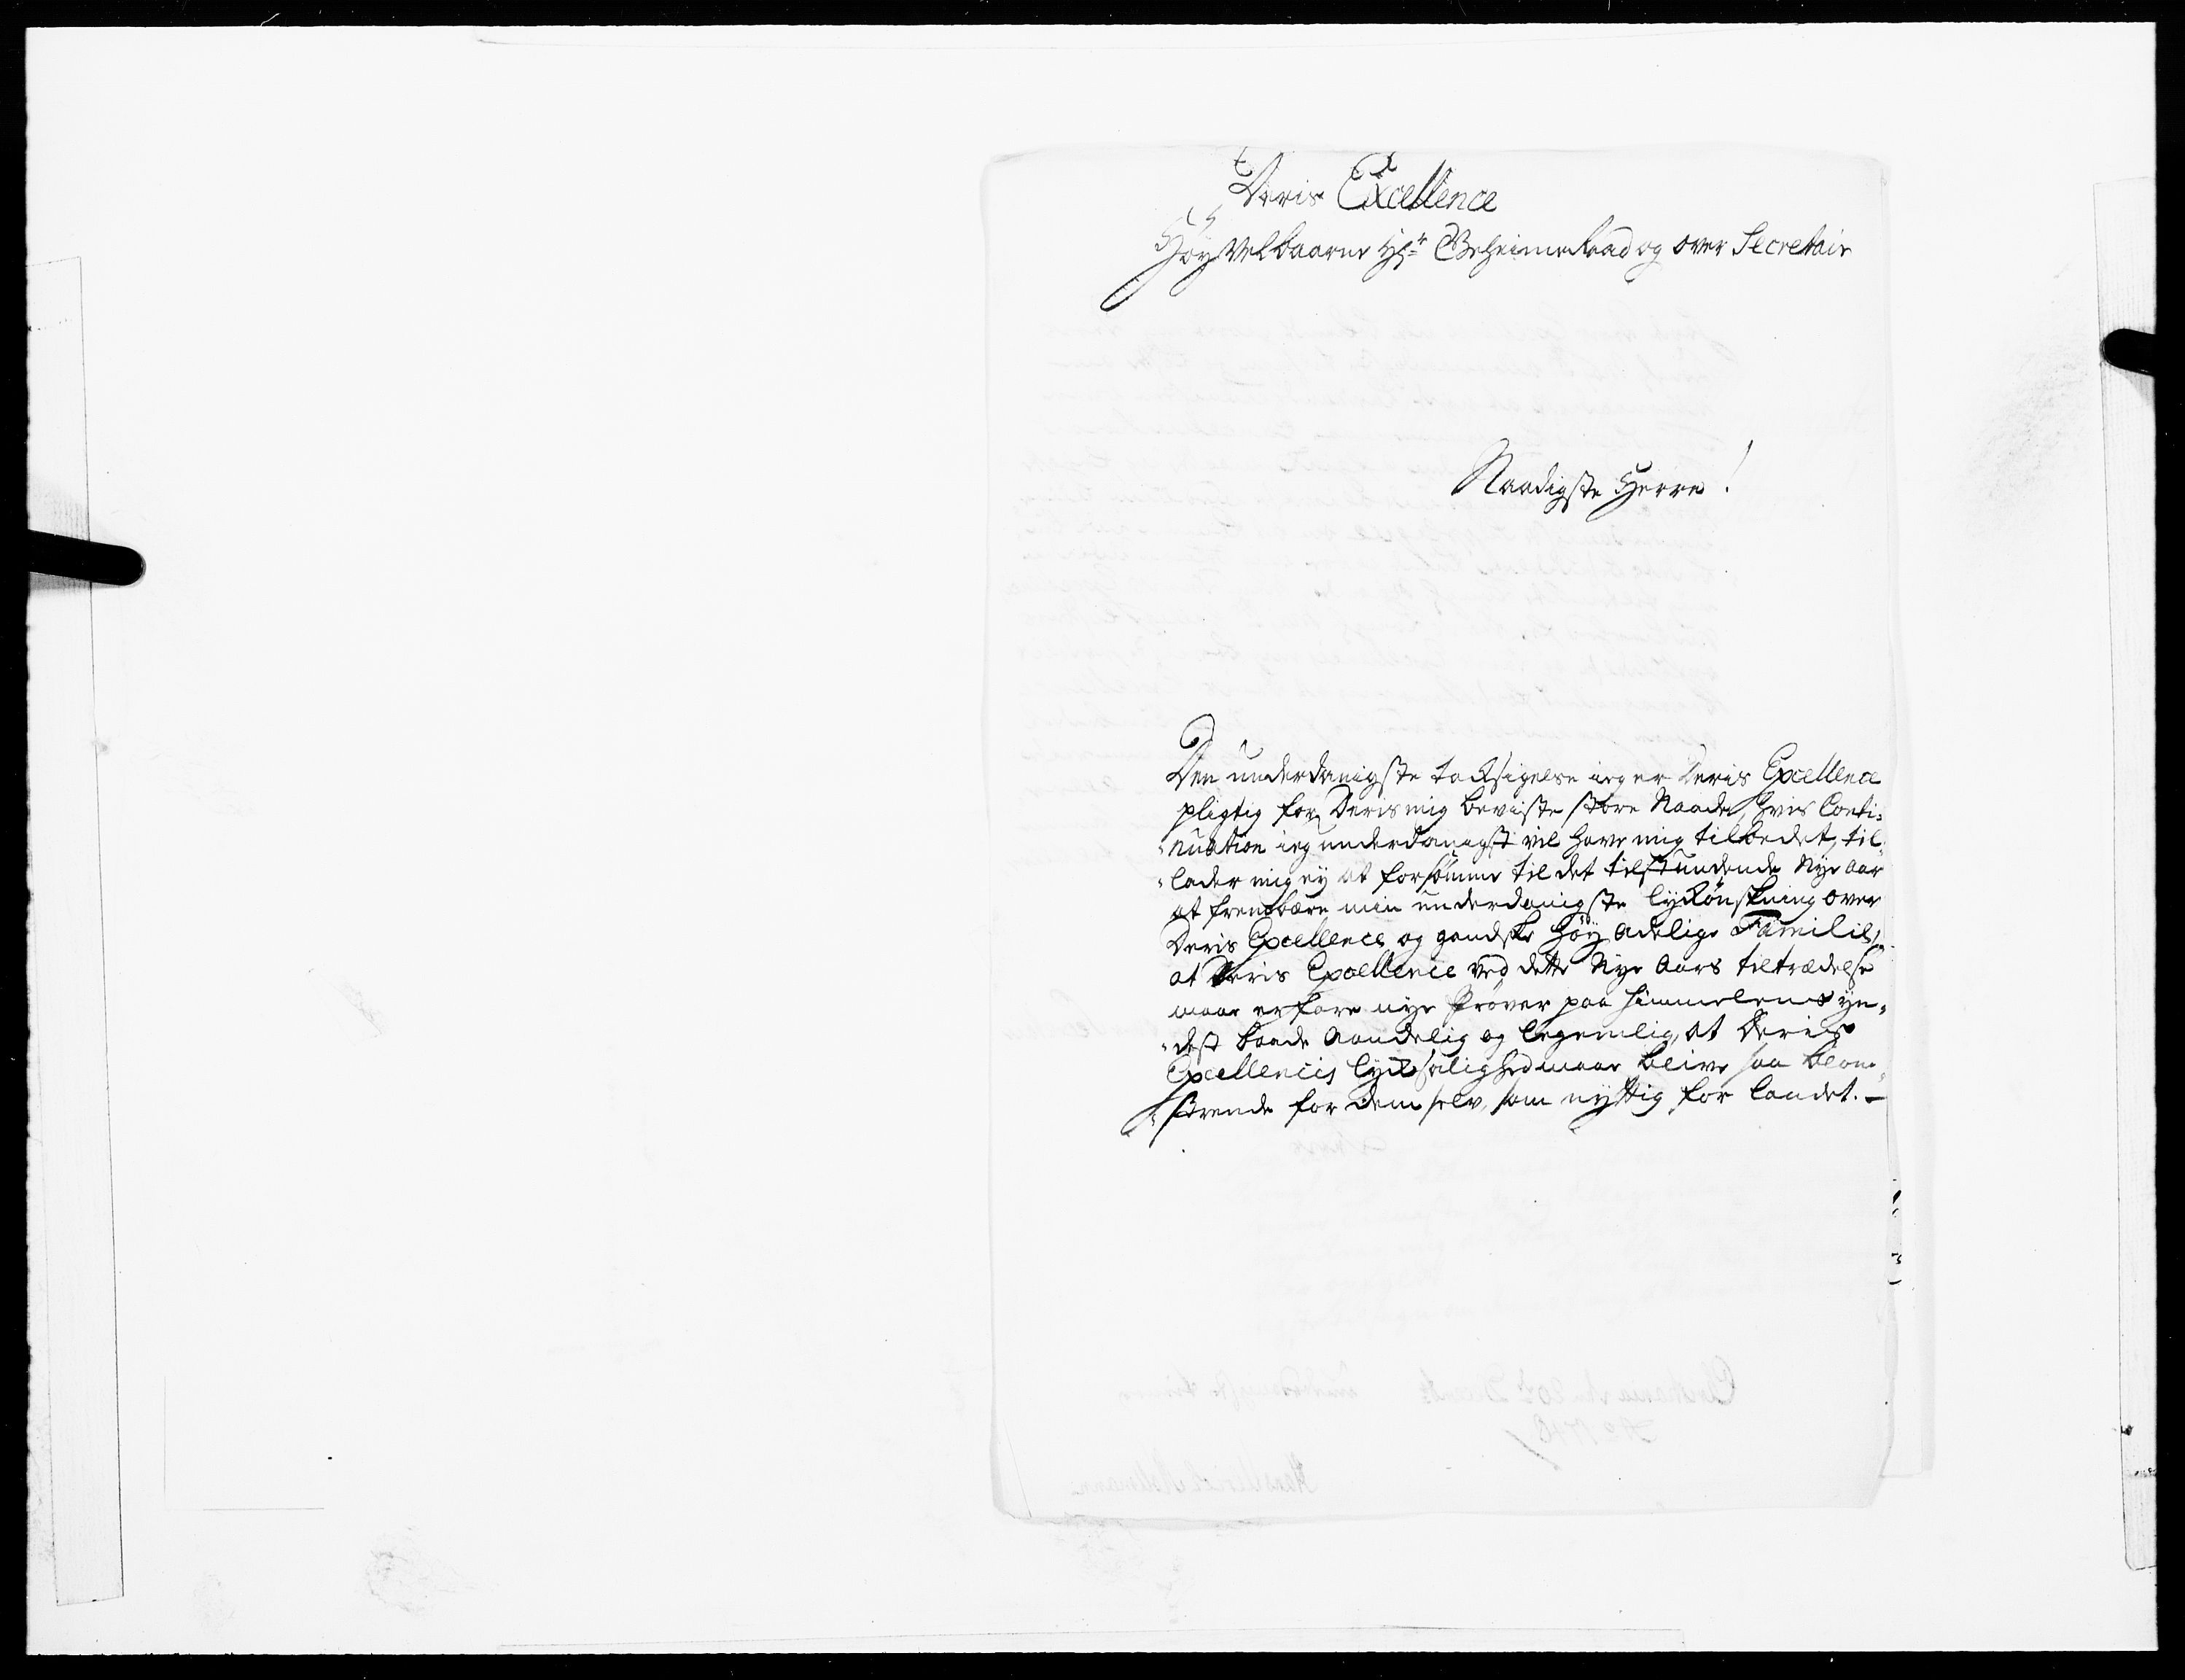 Deris Excellence
Høyvelbaarne Hr. Geheime Raad og over Secretair
Naadigste Herre!
Den underdanigste tacksigelse ieg er Deris Excellence
pligtig for Deris mig beviiste store Naade, hvis Conti-
nuation ieg underdanigst vil have mig tilbedet, til-
lader mig ey at forsømme til det tilstundende Nye Aar
at frembære min underdanigste lyckønskning over
Deris Excellence og gandske høy Adelige Familie,
at Deris Excellence ved dette Nye Aars tiltrædelse
maae erfare nye Prøver paa himmelens yn-
dest baade Aandelig og legemlig, at Deris
Excellencis lycksalighed maae blive saa blom-
strende for dem selv, som nyttig for landet. -